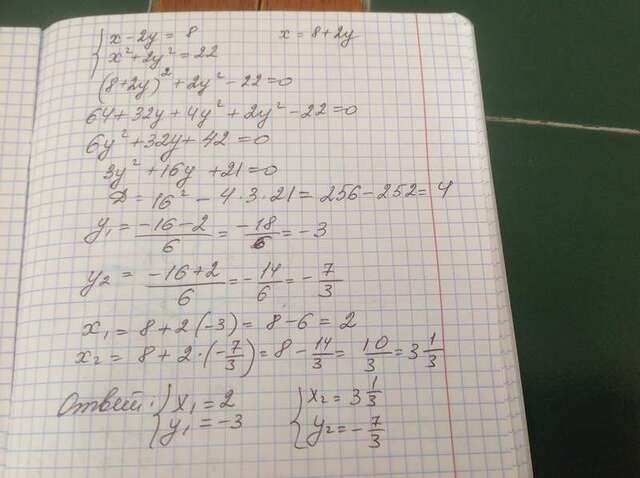 x - 2y = 8    x = 8 + 2y
x² + 2y² = 22
(8+2y)² + 2y² - 22 = 0
64 + 32y + 4y² + 2y² - 22 = 0
6y² + 32y + 42 = 0
3y² + 16y + 21 = 0
D = 16² - 4·3·21 = 256 - 252 = 4
y₁ = (-16-2)/6 = -18/6 = -3
y₂ = (-16+2)/6 = -14/6 = -7/3
x₁ = 8 + 2(-3) = 8 - 6 = 2
x₂ = 8 + 2·(-7/3) = 8 - 14/3 = 10/3 = 3 1/3
Ответ: { x₁ = 2    { x₂ = 3 1/3
y₁ = -3    y₂ = -7/3